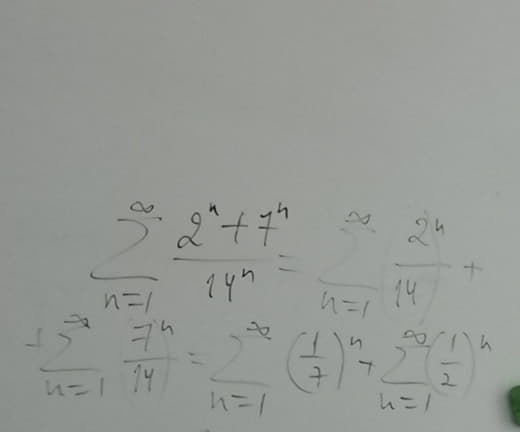 ∑_{n=1}^{∞} (2^n + 7^n)/14^n = ∑_{n=1}^{∞} (2^n/14) +
+ ∑_{n=1}^{∞} (7^n/14) = ∑_{n=1}^{∞} (1/7)^n + ∑_{n=1}^{∞} (1/2)^n